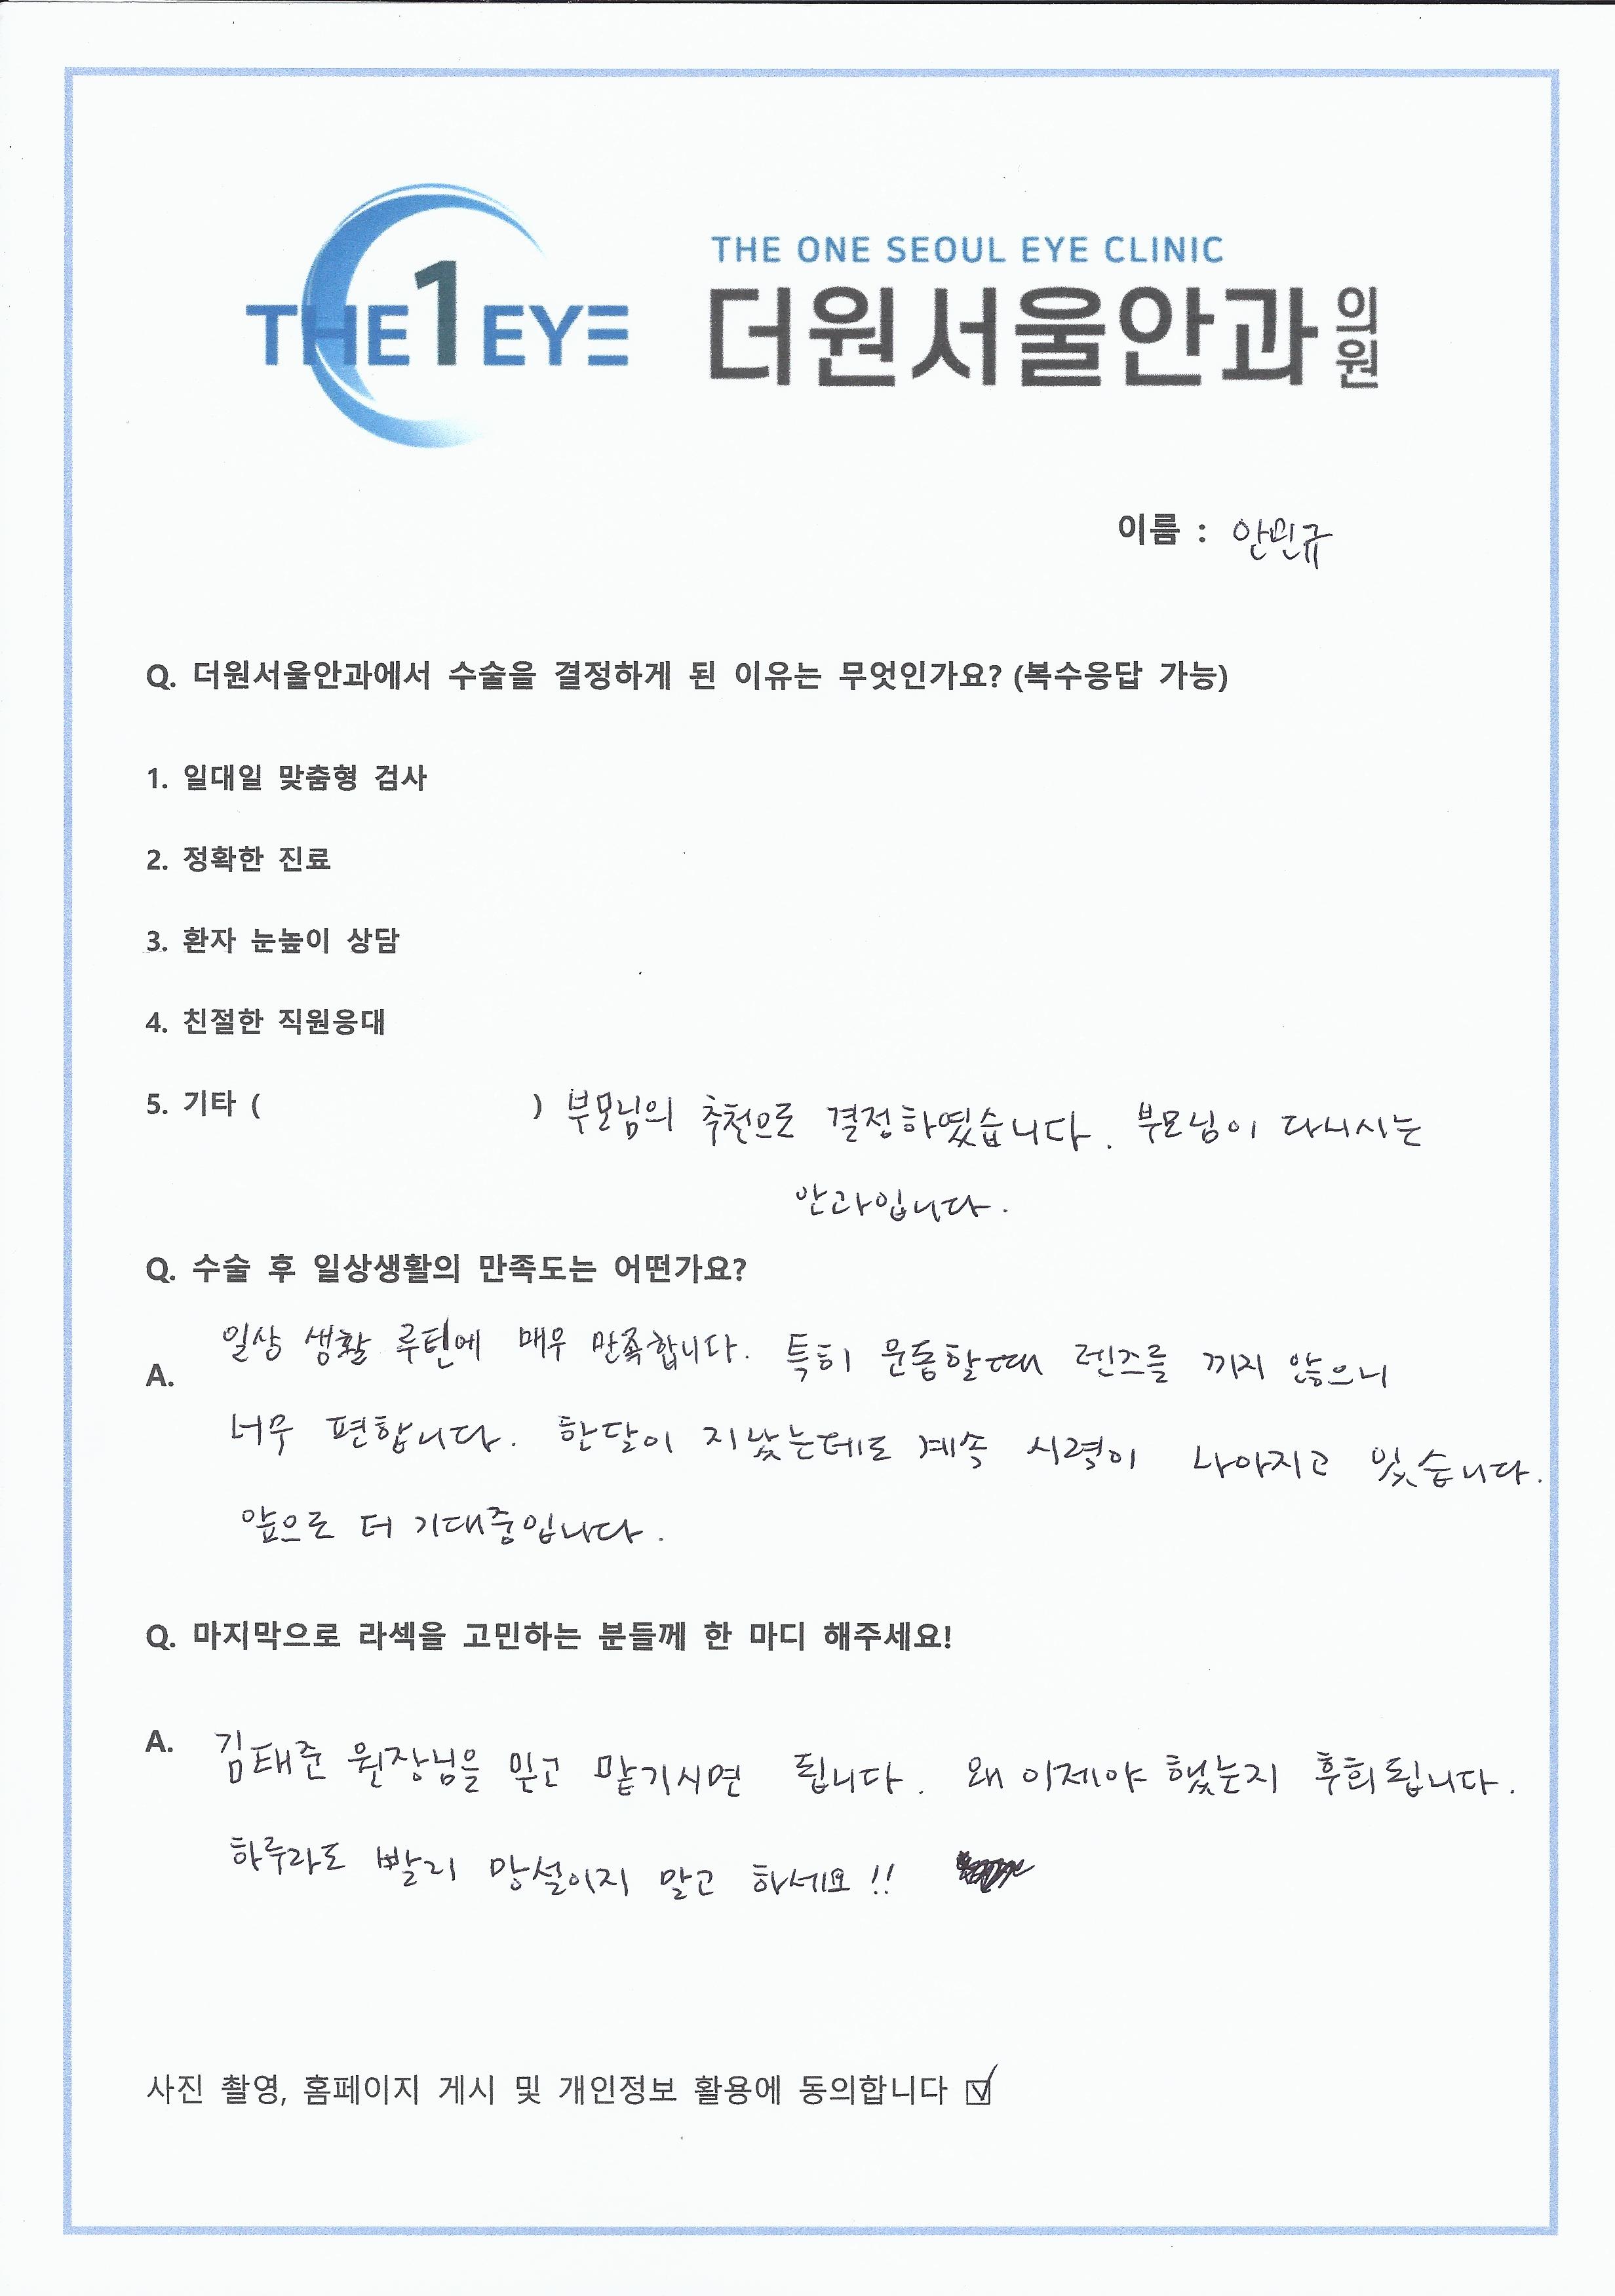 THE1EYE
THE ONE SEOUL EYE CLINIC
더원서울안과의원
이름 : 안민규
Q. 더원서울안과에서 수술을 결정하게 된 이유는 무엇인가요? (복수응답 가능)
1. 일대일 맞춤형 검사
2. 정확한 진료
3. 환자 눈높이 상담
4. 친절한 직원응대
5. 기타 ( ) 부모님의 추천으로 결정하였습니다. 부모님이 다니시는
안과입니다.
Q. 수술 후 일상생활의 만족도는 어떤가요?
A. 일상 생활 루틴에 매우 만족합니다. 특히 운동할때 렌즈를 끼지 않으니
너무 편합니다. 한달이 지났는데도 계속 시력이 나아지고 있습니다.
앞으로 더 기대중입니다.
Q. 마지막으로 라섹을 고민하는 분들께 한 마디 해주세요!
A. 김태준 원장님을 믿고 맡기시면 됩니다. 왜 이제야 했는지 후회됩니다.
하루라도 빨리 망설이지 말고 하세요!!
사진 촬영, 홈페이지 게시 및 개인정보 활용에 동의합니다 ☑